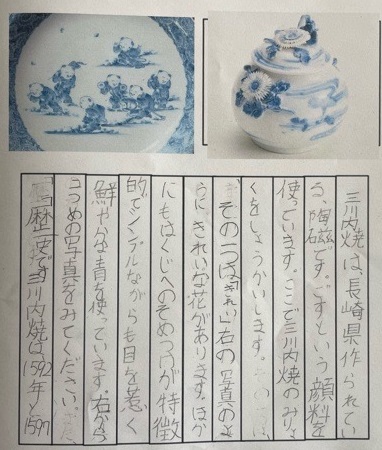 三川内焼は、長崎県作られてい
る、陶磁です。ごすという顔料を
使っています。ここで三川内焼のみりょ
くをしょうかいします。
その一つは「きれい」右の写真のよ
うにきれいな花があります。ほか
にもはくじへのそめつけが特徴
的でシンプルながらも目を惹く
鮮やかな青を使っています。右から
つめの写真をみてください。
歴史です三川内焼は、1592年〜159